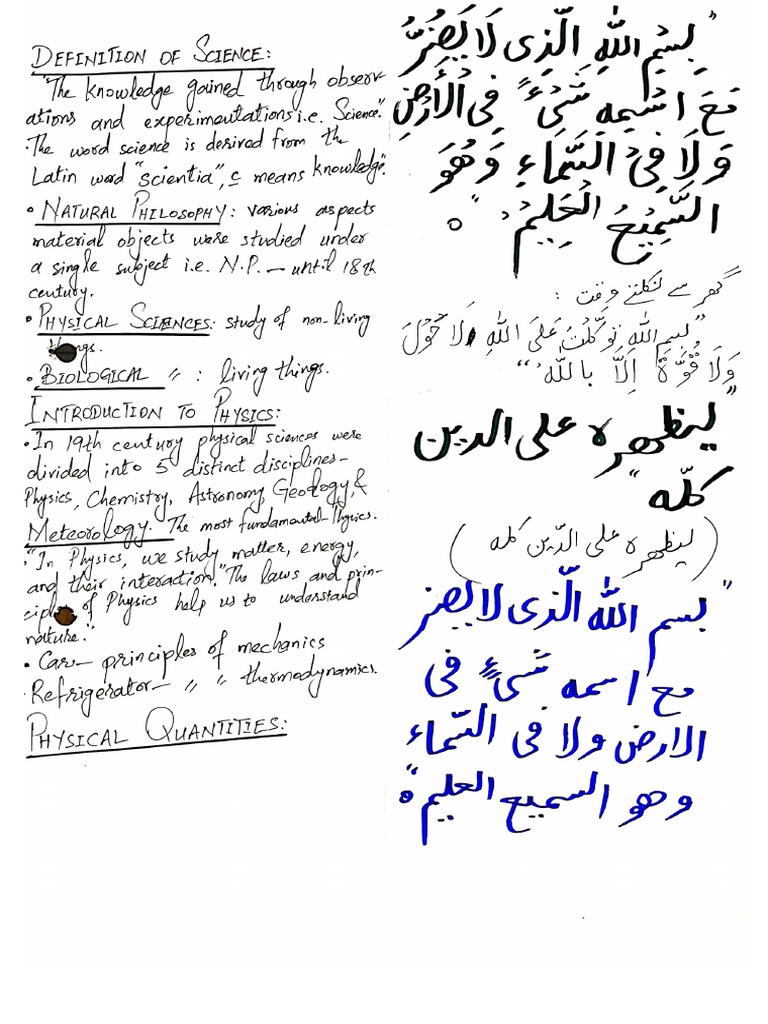 DEFINITION OF SCIENCE:
"The knowledge gained through observ-
ations and experimentations i.e. Science".
• The word science is derived from the
Latin word "scientia", c means knowledge".
• NATURAL PHILOSOPHY: various aspects
material objects were studied under
a single subject i.e. N.P. – until 18th
century.
• PHYSICAL SCIENCES: study of non-living
things.
• BIOLOGICAL 〃 : living things.
INTRODUCTION TO PHYSICS:
• In 19th century physical sciences were
divided into 5 distinct disciplines –
Physics, Chemistry, Astronomy, Geology, &
Meteorology. The most fundamental – Physics.
• "In Physics, we study matter, energy,
and their interaction." The laws and prin-
ciples of Physics help us to understand
nature."
• Car – principles of mechanics
Refrigerator – 〃 〃 thermodynamics.
PHYSICAL QUANTITIES:
"بِسْمِ اللهِ الَّذِى لَا يَضُرُّ
مَعَ اسْمِهِ شَىْءٌ فِى الْأَرْضِ
وَلَا فِى السَّمَاءِ وَهُوَ
السَّمِيْعُ الْعَلِيْمُ" ه
گھر سے نکلتے وقت :
"بسم اللهِ توَكَّلْتُ عَلَى اللهِ وَلَا حَوْلَ
وَلَا قُوَّةَ اِلَّا بِاللّٰه"
"ليظهره على الدين
كلّه"
(ليظهره على الدّين كله)
"بسم الله الّذى لا يضر
مع اسمه شىءٌ فى
الارض ولا فى السّماء
وهو السميع العليم" ه